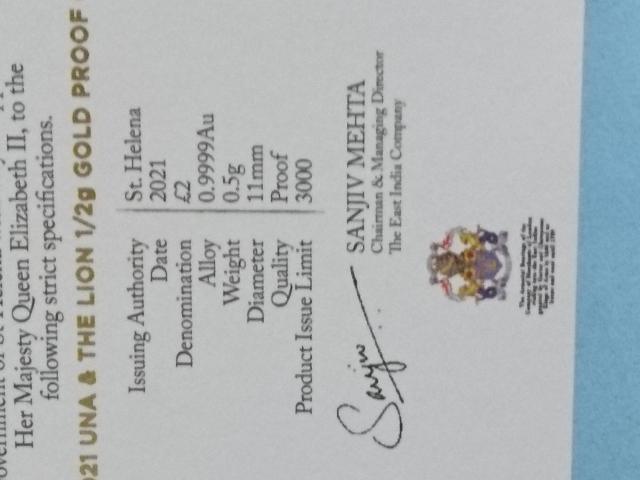 Her Majesty Queen Elizabeth II, to the
following strict specifications.
21 UNA & THE LION 1/2g GOLD PROOF
Issuing Authority St. Helena
Date 2021
Denomination £2
Alloy 0.9999Au
Weight 0.5g
Diameter 11mm
Quality Proof
Product Issue Limit 3000
Sanjiv
SANJIV MEHTA
Chairman & Managing Director
The East India Company